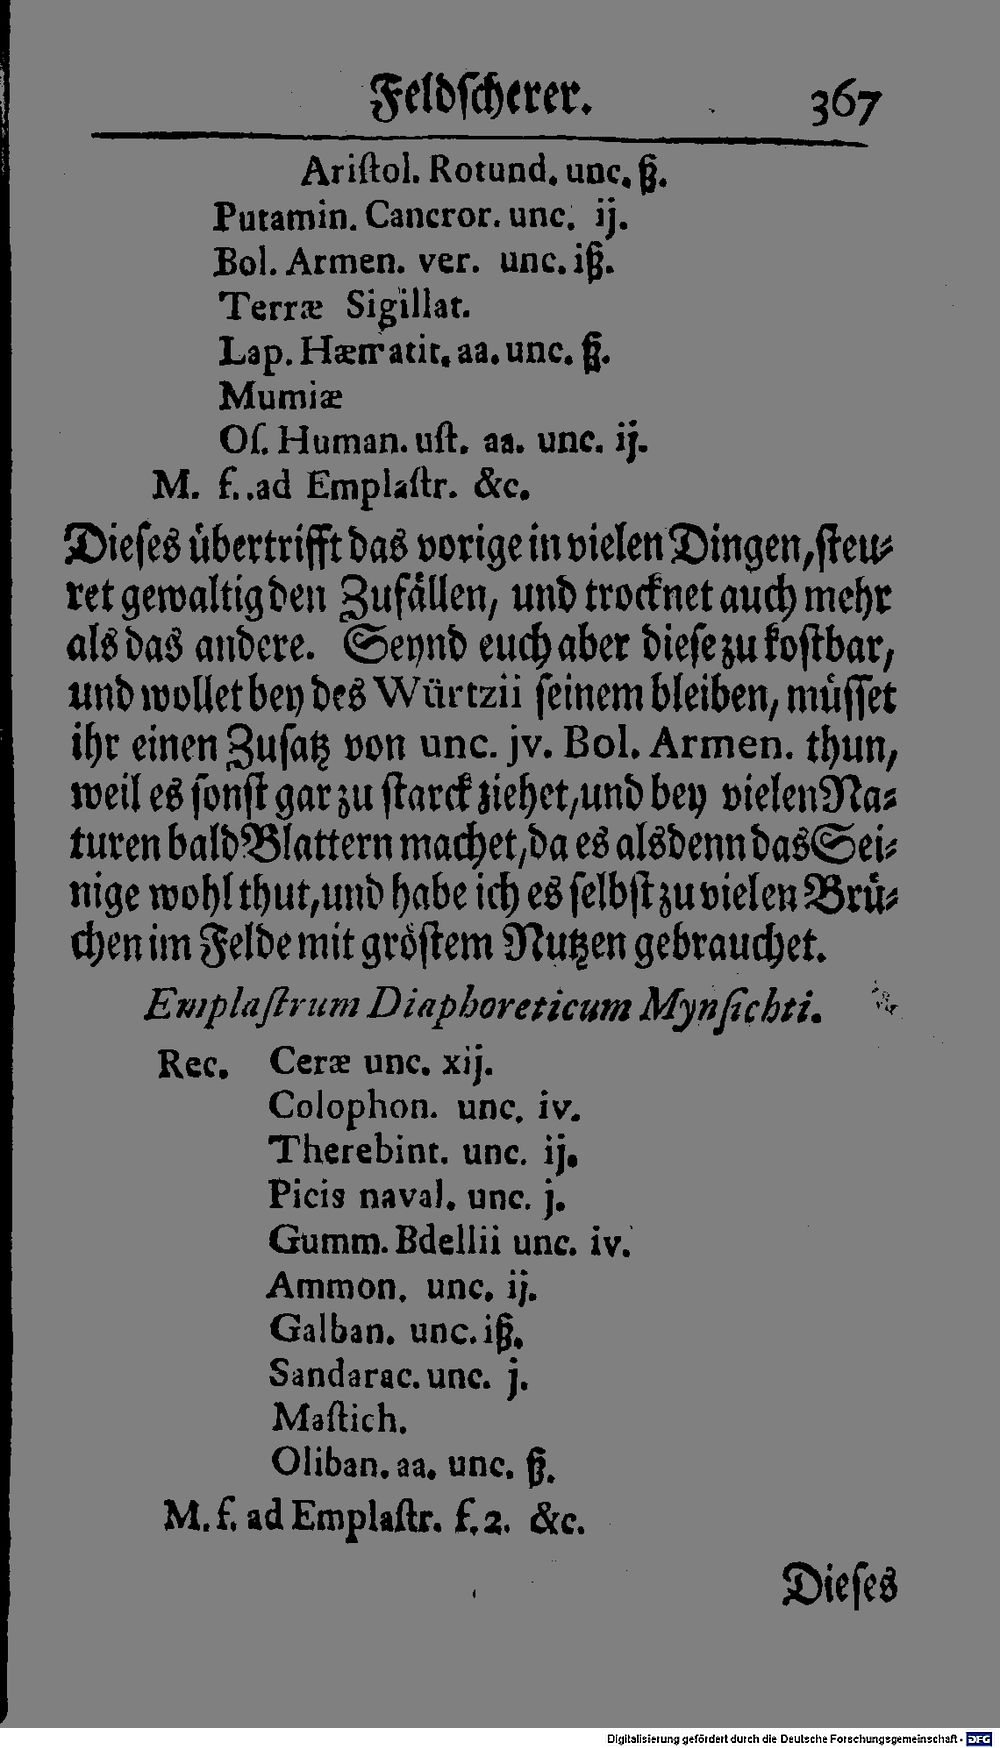 Feldſcherer. 367
Ariſtol. Rotund. unc. ß.
Putamin. Cancror. unc. ij.
Bol. Armen. ver. unc. iß.
Terræ Sigillat.
Lap. Hæmatit. aa. unc. ß.
Mumiæ
Oſ. Human. uſt. aa. unc. ij.
M. f. ad Emplaſtr. &c.
Dieſes übertrifft das vorige in vielen Dingen, ſteu⸗
ret gewaltig den Zufällen, und trocknet auch mehr
als das andere. Seynd euch aber dieſe zu koſtbar,
und wollet bey des Würtzii ſeinem bleiben, müſſet
ihr einen Zuſatz von unc. jv. Bol. Armen. thun,
weil es ſonſt gar zu ſtarck ziehet, und bey vielen Na⸗
turen bald Blattern machet, da es alsdenn das Sei⸗
nige wohl thut, und habe ich es ſelbſt zu vielen Brü⸗
chen im Felde mit gröſtem Nutzen gebrauchet.
Emplaſtrum Diaphoreticum Mynſichti.
Rec. Ceræ unc. xij.
Colophon. unc. iv.
Therebint. unc. ij.
Picis naval. unc. j.
Gumm. Bdellii unc. iv.
Ammon. unc. ij.
Galban. unc. iß.
Sandarac. unc. j.
Maſtich.
Oliban. aa. unc. ß.
M. f. ad Emplaſtr. f. 2. &c.
Dieſes
Digitalisierung gefördert durch die Deutsche Forschungsgemeinschaft - DFG